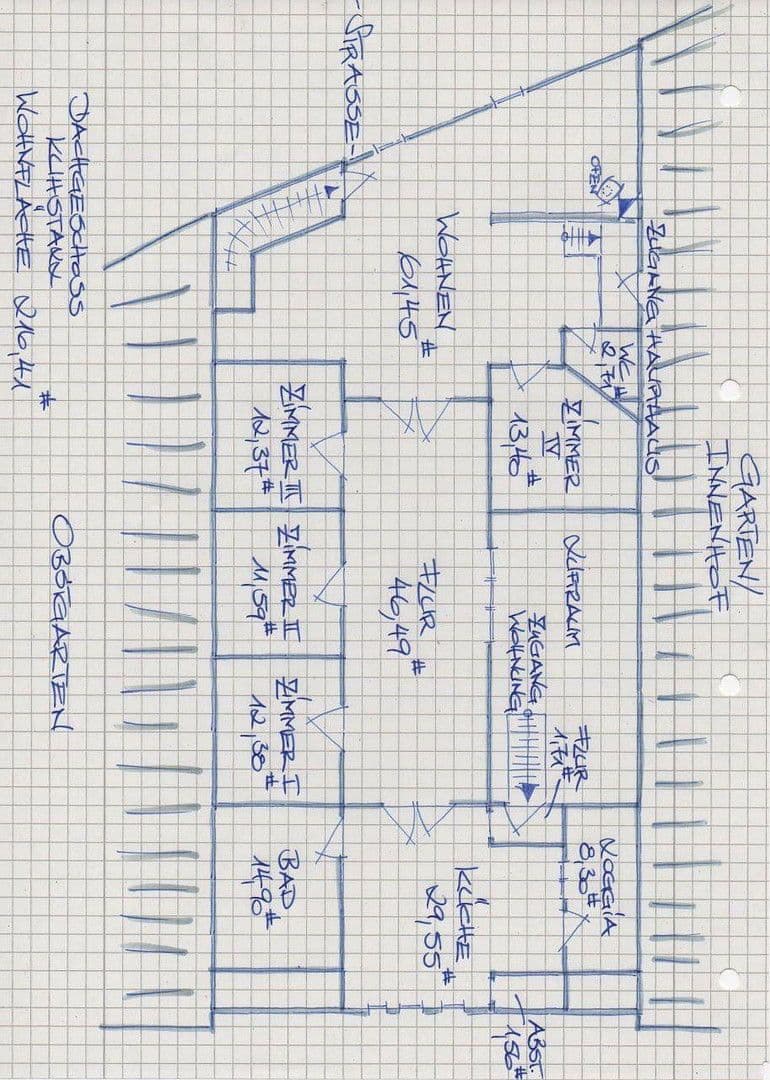 GARTEN/
INNENHOF
ZUGANG HAUPTHAUS
OFEN
WC
2,71 #
LOGGIA
8,30 #
FLUR
1,71 #
ZIMMER
IV
13,40 #
LUFTRAUM
ZUGANG
WOHNUNG
ABST.
1,50 #
WOHNEN
61,45 #
FLUR
46,49 #
KÜCHE
29,55 #
-STRASSE-
ZIMMER III
12,37 #
ZIMMER II
11,59 #
ZIMMER I
12,38 #
BAD
14,96 #
DACHGESCHOSS
WOHNFLÄCHE 216,41 #
OBSTGARTEN